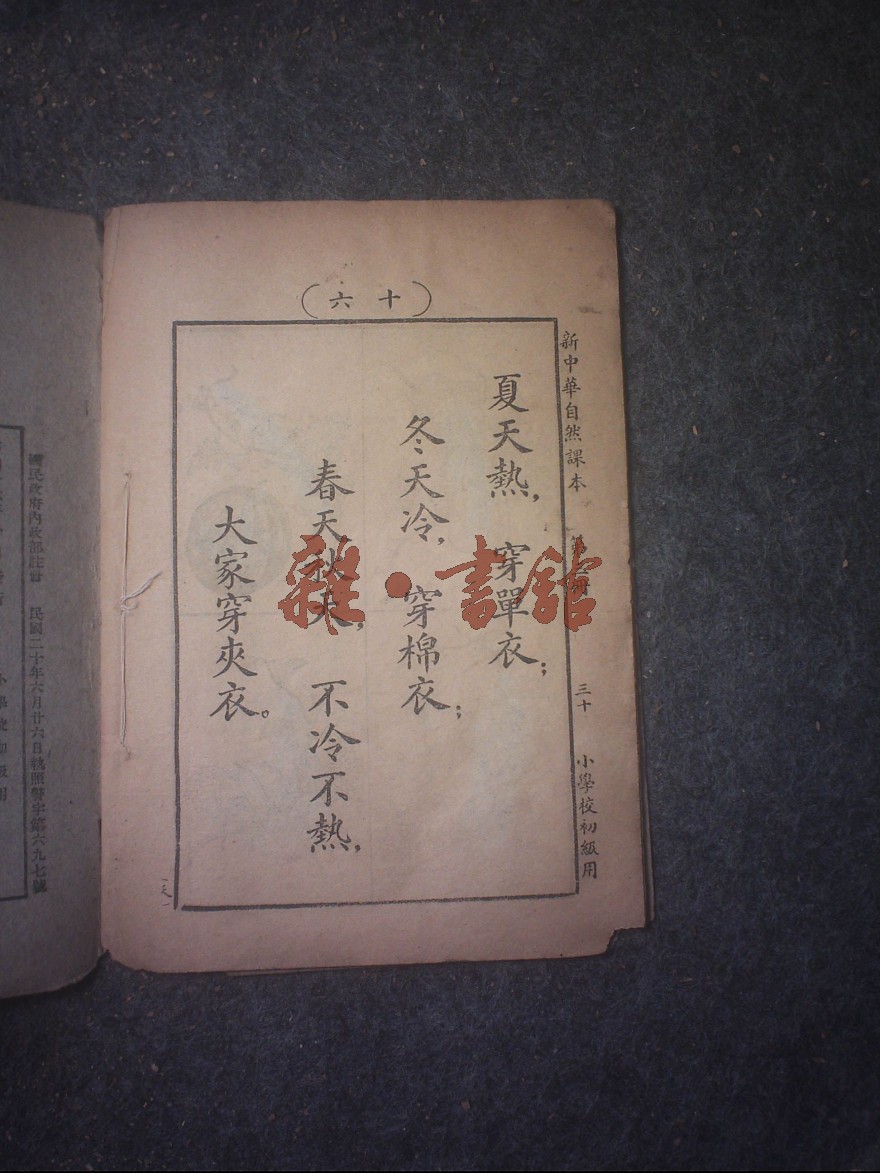 （十六）
新中華自然課本
三十
小學校初級用
夏天熱，穿單衣；
冬天冷，穿棉衣；
春天秋天，不冷不熱，
大家穿夾衣。
雜·書館
國民政府內政部註冊 民國二十年六月廿六日執照警字第六九七號